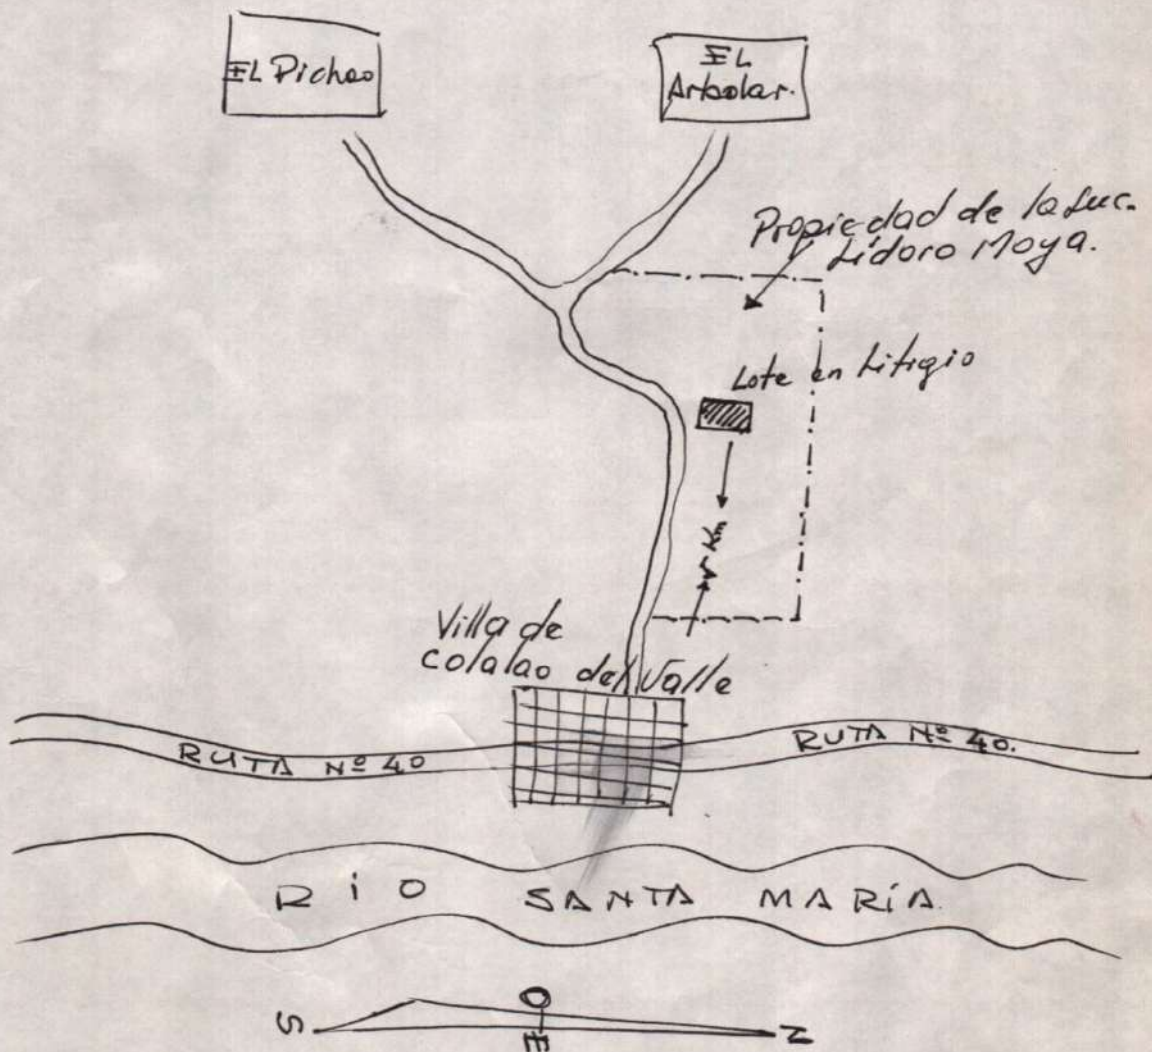 EL Pichao
EL
Arbolar.
Propiedad de la Suc.
Lídoro Moya.
Lote en Litigio
Villa de
Colalao del Valle
RUTA Nº 40
RUTA Nº 40.
RÍO SANTA MARÍA.
S O N
E